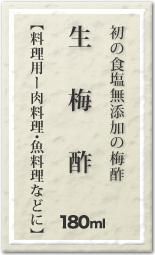 初の食塩無添加の梅酢
生梅酢
【料理用ー肉料理・魚料理などに】
180ml